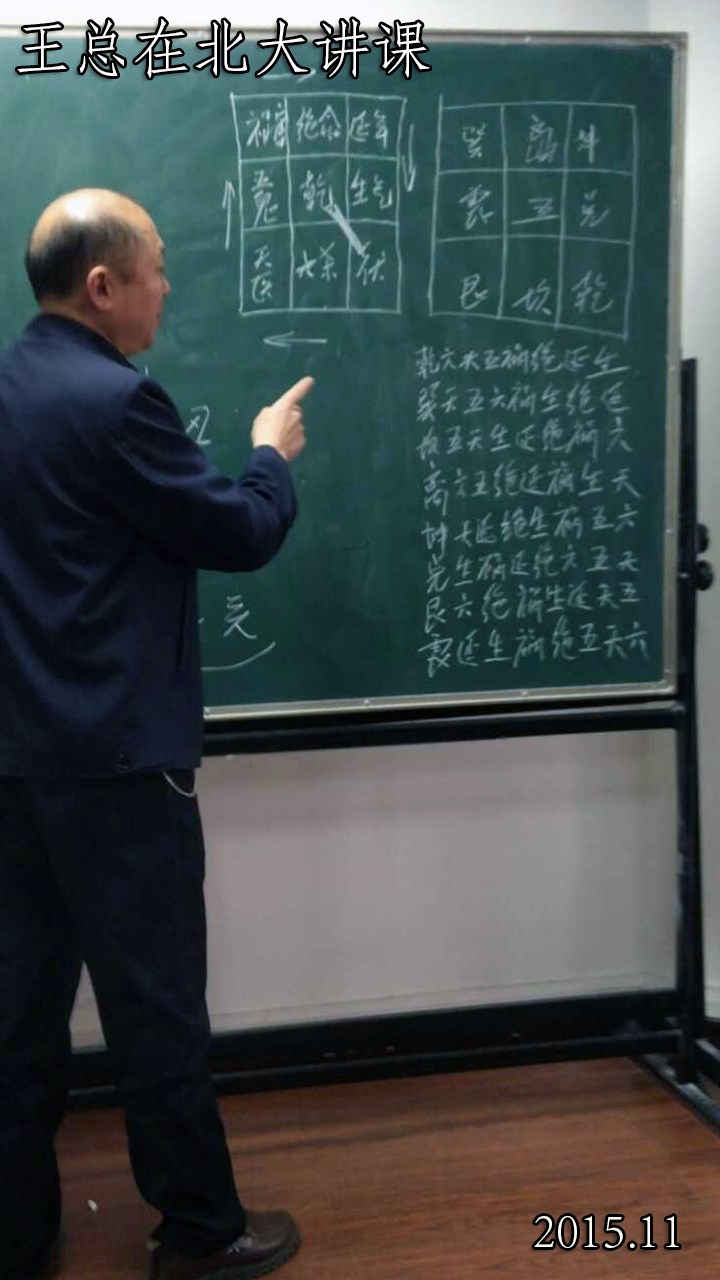 王总在北大讲课
祸害 绝命 延年
五鬼 乾 生气
天医 六杀 伏
巽 离 坤
震 五 兑
艮 坎 乾
乾六天五祸绝延生
巽天五六祸生绝延
坎五天生延绝祸六
离六五绝延祸生天
坤天延绝生祸五六
兑生祸延绝六五天
艮六绝祸生延天五
震延生祸绝五天六
2015.11